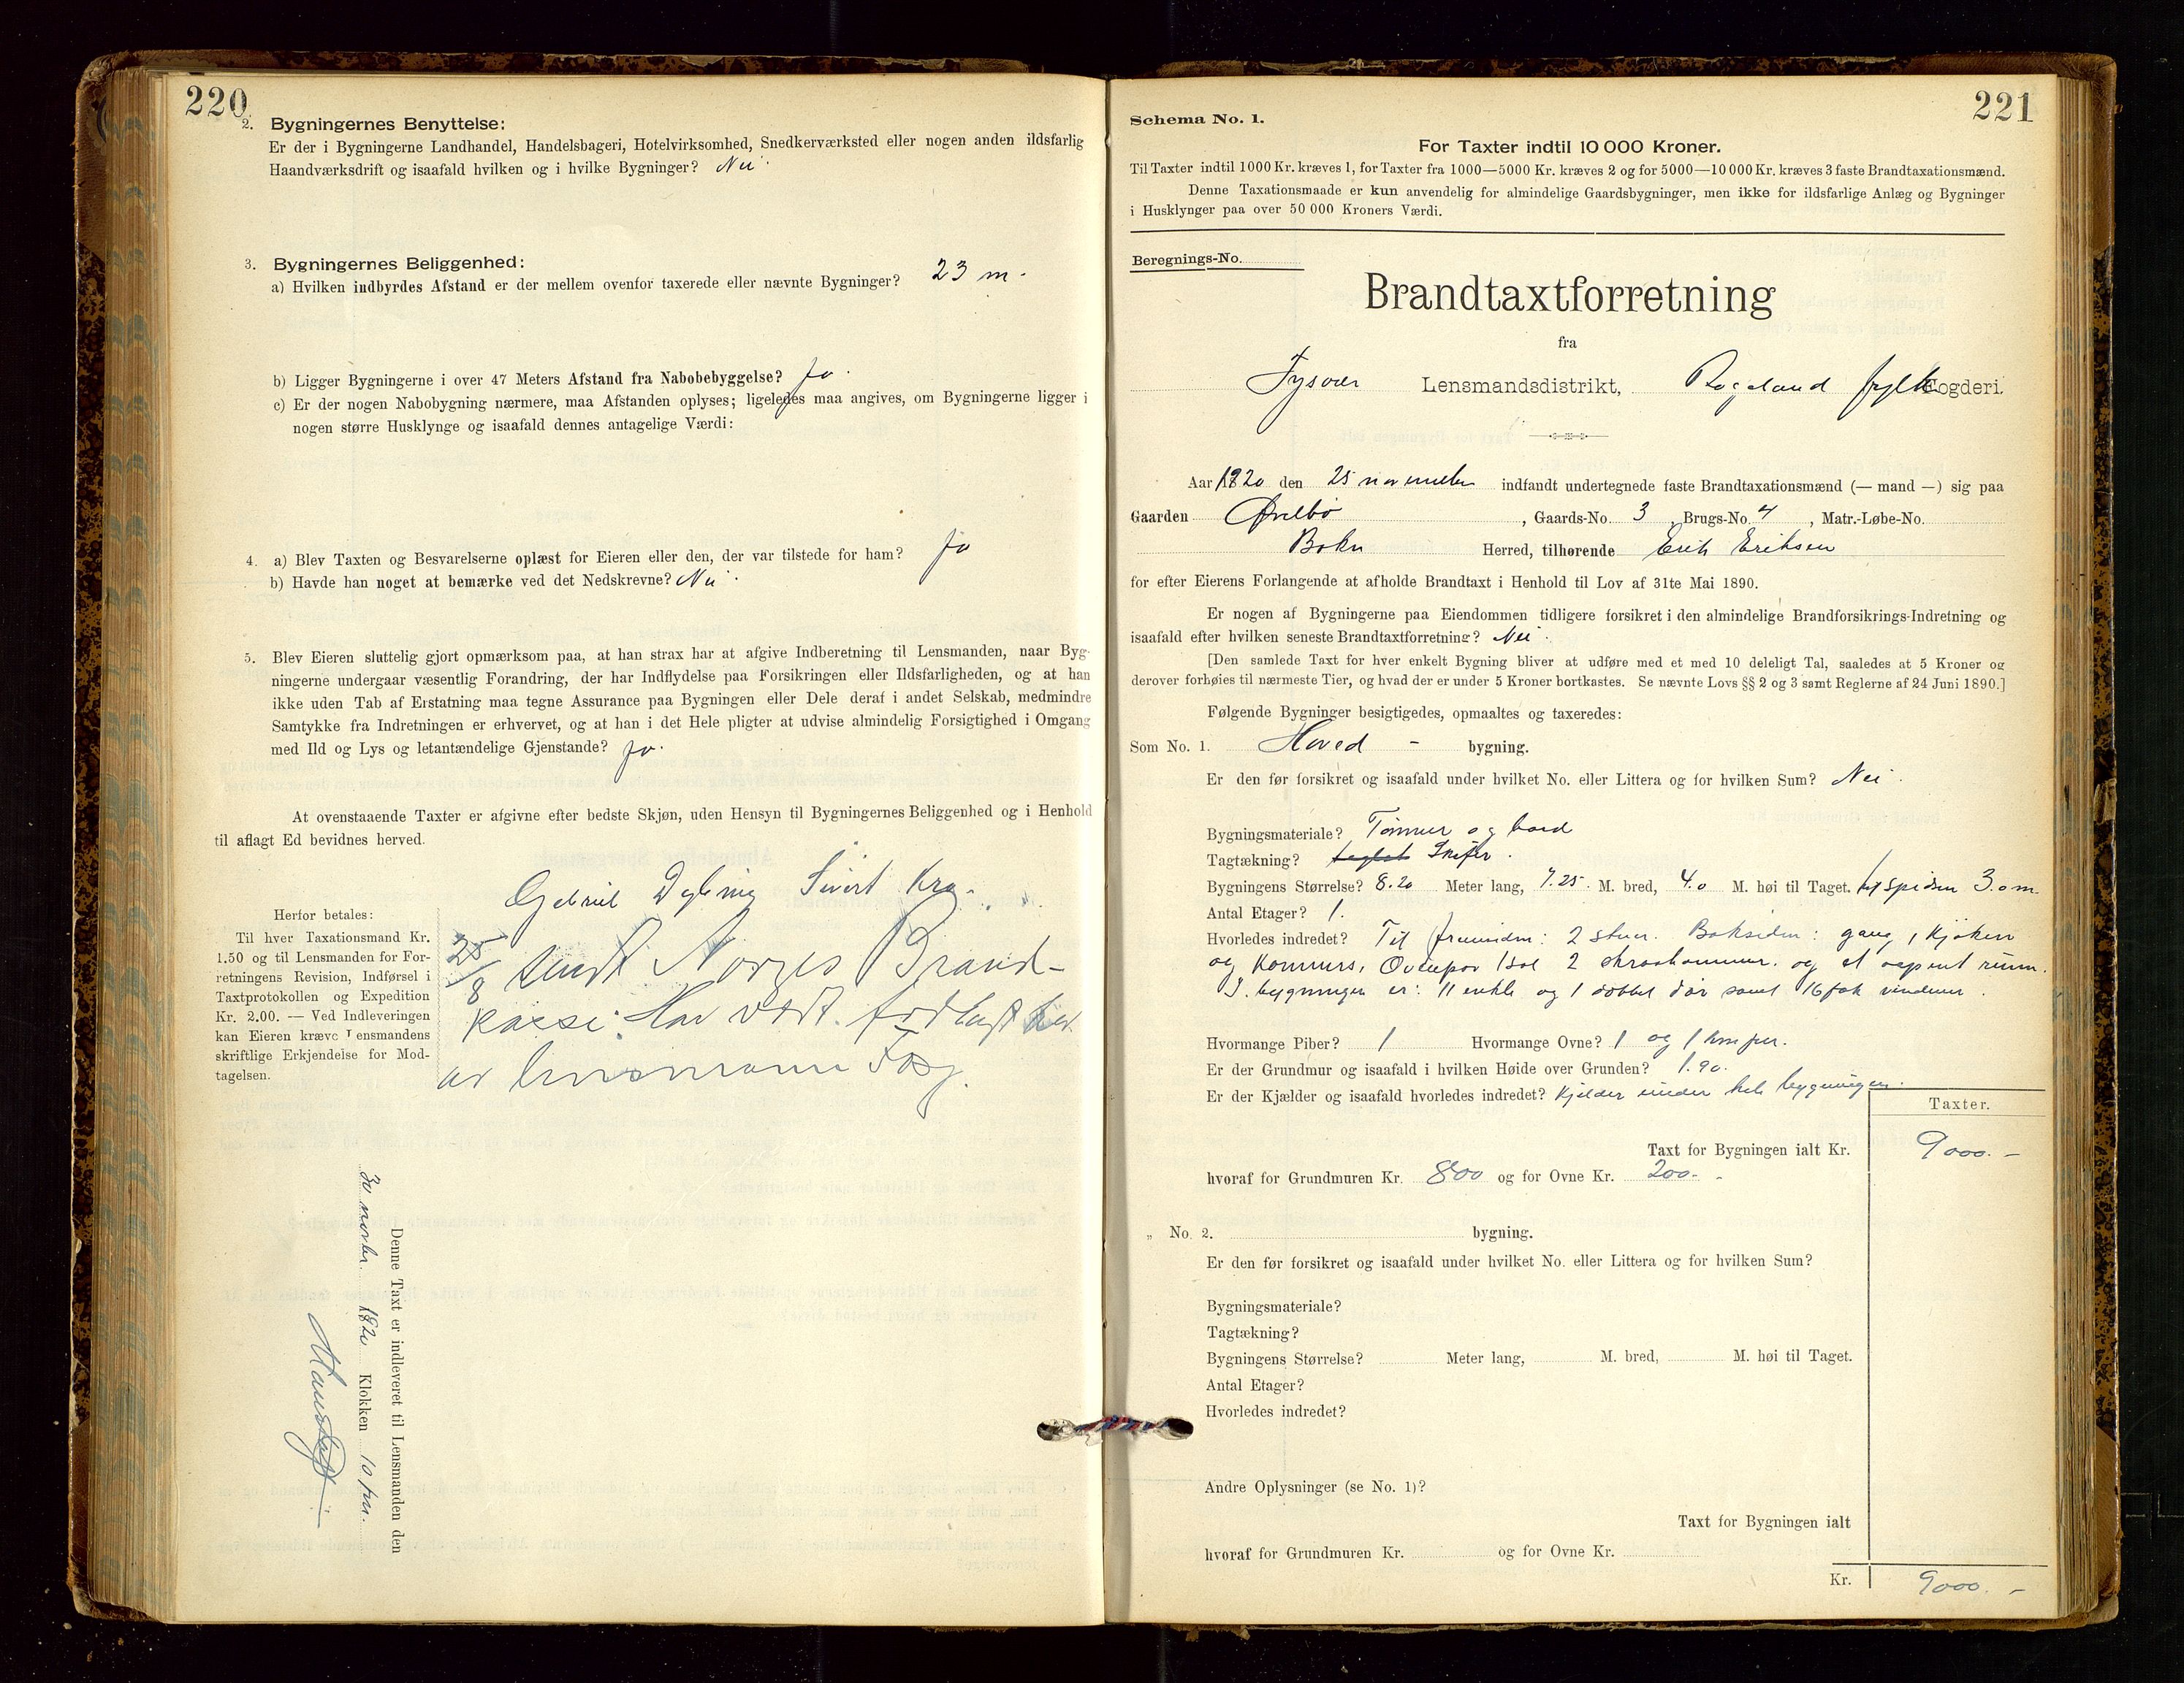 220
2. Bygningernes Benyttelse:
Er der i Bygningerne Landhandel, Handelsbageri, Hotelvirksomhed, Snedkerværksted eller nogen anden ildsfarlig
Haandværksdrift og isaafald hvilken og i hvilke Bygninger? Nei.
3. Bygningernes Beliggenhed:
a) Hvilken indbyrdes Afstand er der mellem ovenfor taxerede eller nævnte Bygninger? 23 m.
b) Ligger Bygningerne i over 47 Meters Afstand fra Nabobebyggelse? Ja.
c) Er der nogen Nabobygning nærmere, maa Afstanden oplyses; ligeledes maa angives, om Bygningerne ligger i
nogen større Husklynge og isaafald dennes antagelige Værdi:
4. a) Blev Taxten og Besvarelserne oplæst for Eieren eller den, der var tilstede for ham? Ja
b) Havde han noget at bemærke ved det Nedskrevne? Nei.
5. Blev Eieren sluttelig gjort opmærksom paa, at han strax har at afgive Indberetning til Lensmanden, naar Byg-
ningerne undergaar væsentlig Forandring, der har Indflydelse paa Forsikringen eller Ildsfarligheden, og at han
ikke uden Tab af Erstatning maa tegne Assurance paa Bygningen eller Dele deraf i andet Selskab, medmindre
Samtykke fra Indretningen er erhvervet, og at han i det Hele pligter at udvise almindelig Forsigtighed i Omgang
med Ild og Lys og letantændelige Gjenstande? Ja.
At ovenstaaende Taxter er afgivne efter bedste Skjøn, uden Hensyn til Bygningernes Beliggenhed og i Henhold
til aflagt Ed bevidnes herved.
Gabriel Sivert
Herfor betales:
Til hver Taxationsmand Kr.
1.50 og til Lensmanden for For-
retningens Revision, Indførsel i
Taxtprotokollen og Expedition
Kr. 2.00. — Ved Indleveringen
kan Eieren kræve Lensmandens
skriftlige Erkjendelse for Mod-
tagelsen.
25/8 sendt Norges Brand-
kasse. Har vært
av lensmann
Denne Taxt er indleveret til Lensmanden den
30 novbr. 1820 Klokken 10 fm.
221
Schema No. 1.
For Taxter indtil 10 000 Kroner.
Til Taxter indtil 1000 Kr. kræves 1, for Taxter fra 1000—5000 Kr. kræves 2 og for 5000—10 000 Kr. kræves 3 faste Brandtaxationsmænd.
Denne Taxationsmaade er kun anvendelig for almindelige Gaardsbygninger, men ikke for ildsfarlige Anlæg og Bygninger
i Husklynger paa over 50 000 Kroners Værdi.
Beregnings-No.
Brandtaxtforretning
fra
Tysvær Lensmandsdistrikt, Rogaland fylke Fogderi.
Aar 1820 den 25 november indfandt undertegnede faste Brandtaxationsmænd (— mand —) sig paa
Gaarden Øvrebø, Gaards-No. 3, Brugs-No. 4, Matr.-Løbe-No.
Bokn Herred, tilhørende Erik Eriksen
for efter Eierens Forlangende at afholde Brandtaxt i Henhold til Lov af 31te Mai 1890.
Er nogen af Bygningerne paa Eiendommen tidligere forsikret i den almindelige Brandforsikrings-Indretning og
isaafald efter hvilken seneste Brandtaxtforretning? Nei.
[Den samlede Taxt for hver enkelt Bygning bliver at udføre med et med 10 deleligt Tal, saaledes at 5 Kroner og
derover forhøies til nærmeste Tier, og hvad der er under 5 Kroner bortkastes. Se nævnte Lovs §§ 2 og 3 samt Reglerne af 24 Juni 1890.]
Følgende Bygninger besigtigedes, opmaaltes og taxeredes:
Som No. 1. Hoved - bygning.
Er den før forsikret og isaafald under hvilket No. eller Littera og for hvilken Sum? Nei.
Bygningsmateriale? Tømmer og bord
Tagtækning? Skifer.
Bygningens Størrelse? 8.20 Meter lang, 7.25. M. bred, 4.0 M. høi til Taget. 3.0 m.
Antal Etager? 1.
Hvorledes indredet? Til fremsiden: 2 stuer. Baksiden: gang, 1 kjøken
og kammers, Ovenpaa 2 skraakammer. og et rum.
I bygningen er: 11 enkle og 1 dobbel dør samt 16 fak vinduer.
Hvormange Piber? 1 Hvormange Ovne? 1 og 1 komfur.
Er der Grundmur og isaafald i hvilken Høide over Grunden? 1.90.
Er der Kjælder og isaafald hvorledes indredet? Kjelder under hele bygningen.
Taxter.
Taxt for Bygningen ialt Kr. 9000.-
hvoraf for Grundmuren Kr. 800 og for Ovne Kr. 200.-
„ No. 2. bygning.
Er den før forsikret og isaafald under hvilket No. eller Littera og for hvilken Sum?
Bygningsmateriale?
Tagtækning?
Bygningens Størrelse? Meter lang, M. bred, M. høi til Taget.
Antal Etager?
Hvorledes indredet?
Andre Oplysninger (se No. 1)?
Taxt for Bygningen ialt
hvoraf for Grundmuren Kr. og for Ovne Kr.
Kr. 9000.-